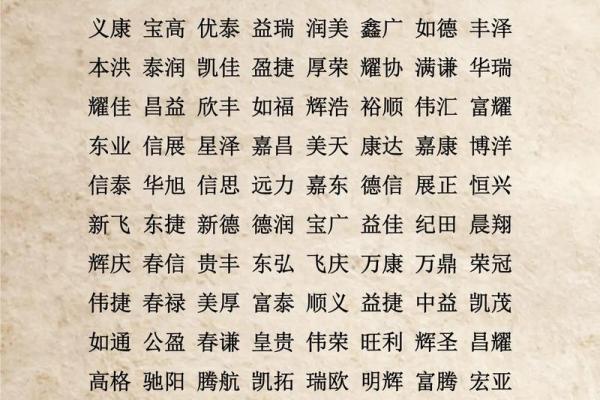 义康 宝高 优泰 益瑞 润美 鑫广 如德 丰泽
本洪 泰润 凯佳 盈捷 厚荣 耀协 满谦 华瑞
耀佳 昌益 欣丰 如福 辉浩 裕顺 伟汇 富耀
东业 信展 星泽 嘉昌 美天 康达 嘉康 博洋
信泰 华旭 信思 远力 嘉东 德信 展正 恒兴
新飞 东捷 新德 德润 宝广 益佳 纪田 晨翔
辉庆 春信 贵丰 东弘 飞庆 万康 万鼎 荣冠
伟捷 春禄 美厚 富泰 顺义 益捷 中益 凯茂
如通 公盈 春谦 皇贵 伟荣 旺利 辉圣 昌耀
高格 驰阳 腾航 凯拓 瑞欧 明辉 富腾 宏亚